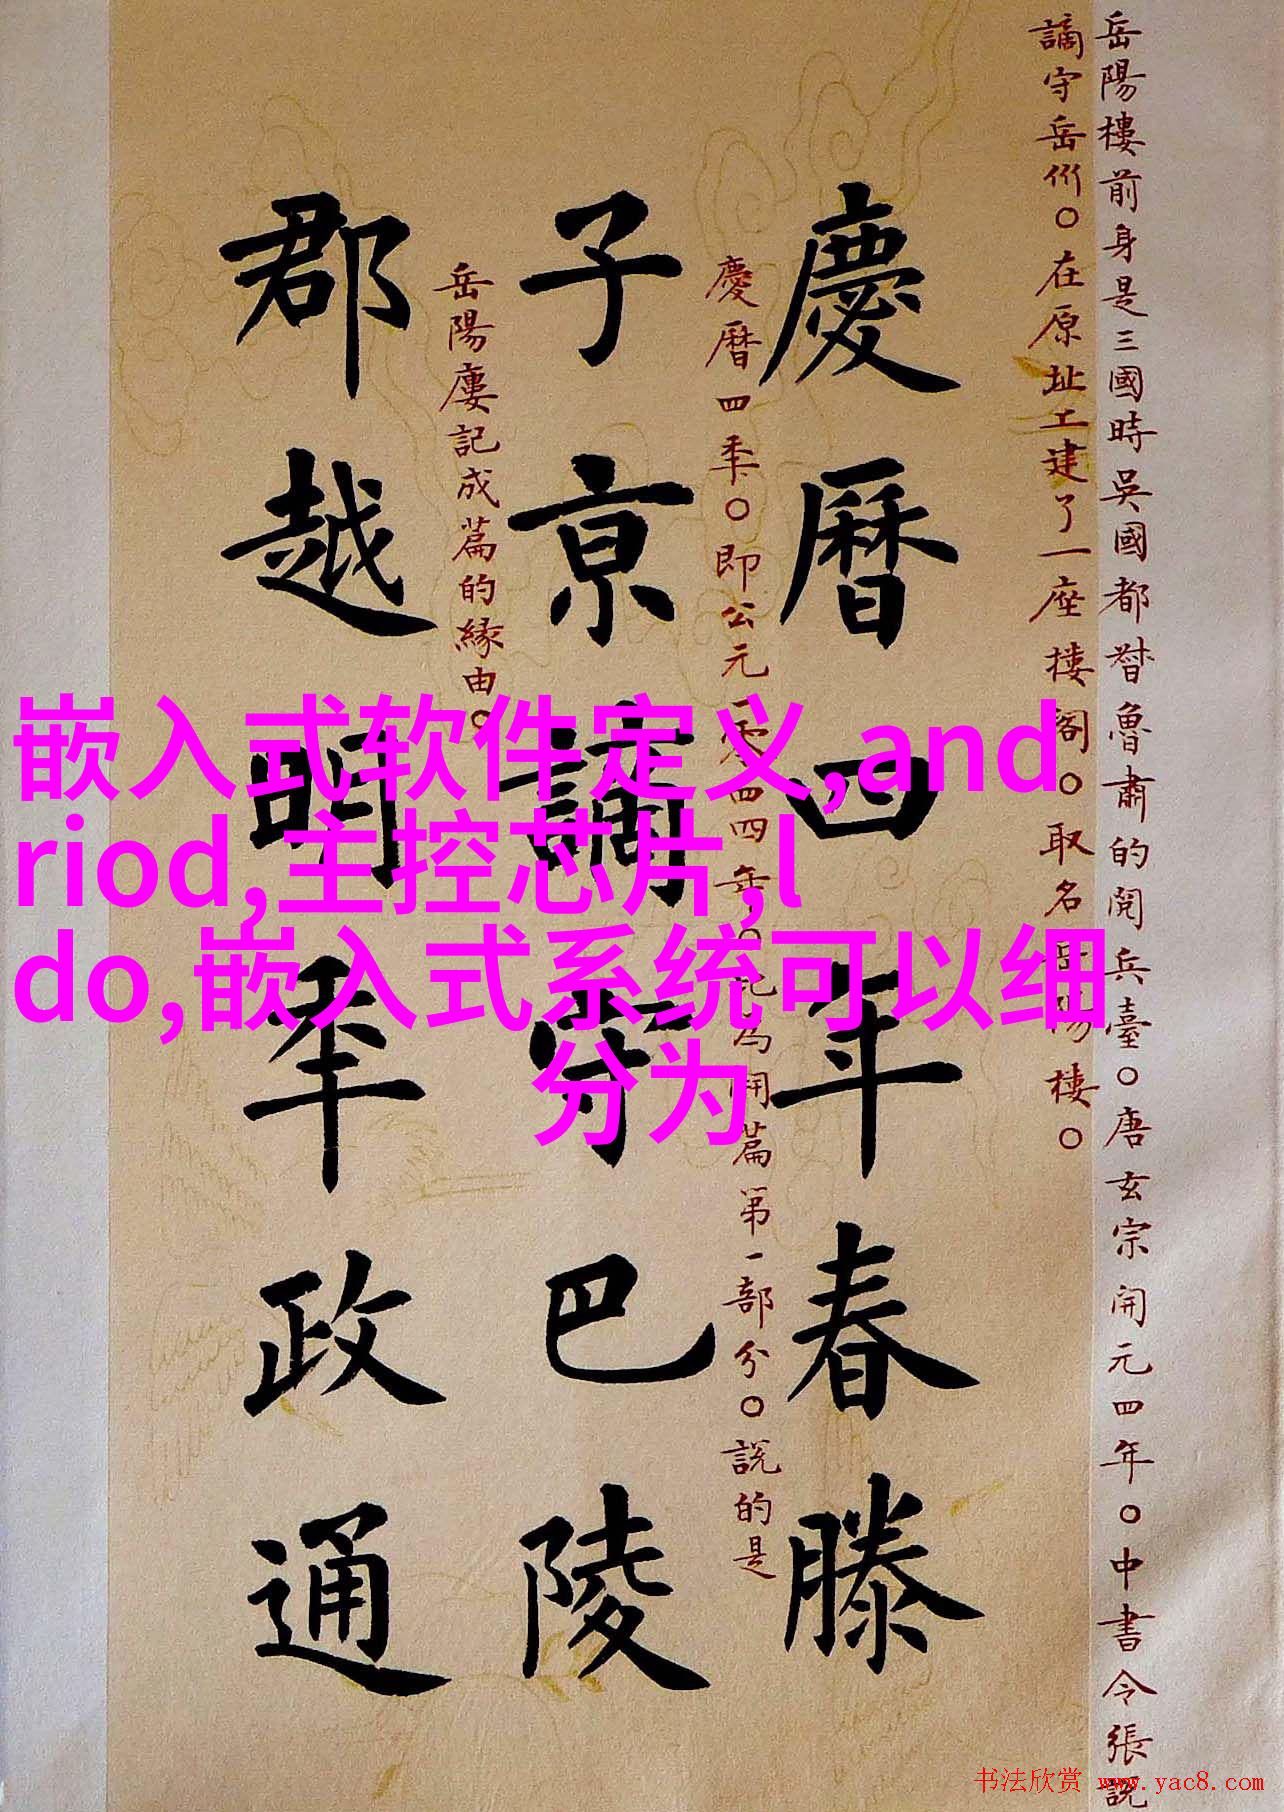 岳陽樓前身是三國時吳國都督魯肅的閱兵臺○唐玄宗開元四年○中書令張說
謫守岳州○在原址工建了一座樓閣○取名岳陽樓○
慶曆四年春滕
慶曆四年○即公元一零四四年○記為開篇第一部分○說的是
子京謫守巴陵
岳陽廔記成篇的緣由○
郡越明年政通
嵌入式软件定义,and
riod,主控芯片,l
do,嵌入式系统可以细
分为
书法欣赏 www.yac8.com